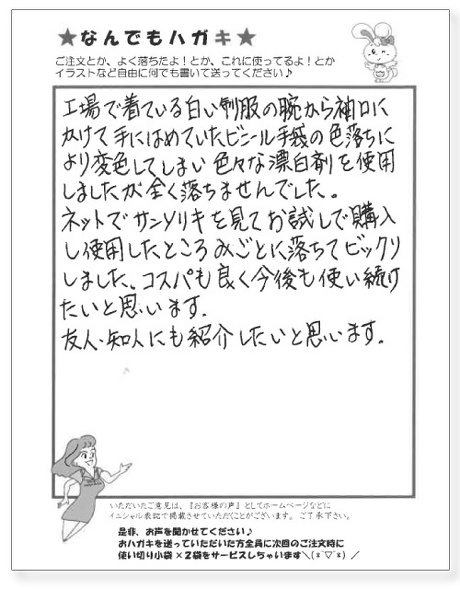 ★なんでもハガキ★
ご注文とか、よく落ちたよ！とか、これに使ってるよ！とか
イラストなど自由に何でも書いて送ってください♪
工場で着ている白い制服の腕から袖口に
かけて手にはめていたビニール手袋の色落ちに
より変色してしまい色々な漂白剤を使用
しましたが全く落ちませんでした。
ネットでサンソリキを見てお試しで購入
し使用したところみごとに落ちてビックリ
しました。コスパも良く今後も使い続け
たいと思います.
友人・知人にも紹介したいと思います。
いただいたご意見は、『お客様の声』としてホームページなどに
イニシャル表記で掲載させていただくことがございます。ご了承下さい。
是非、お声を聞かせてください♪
おハガキを送っていただいた方全員に次回のご注文時に
使い切り小袋×2袋をサービスしちゃいます＼(*´▽`*)／